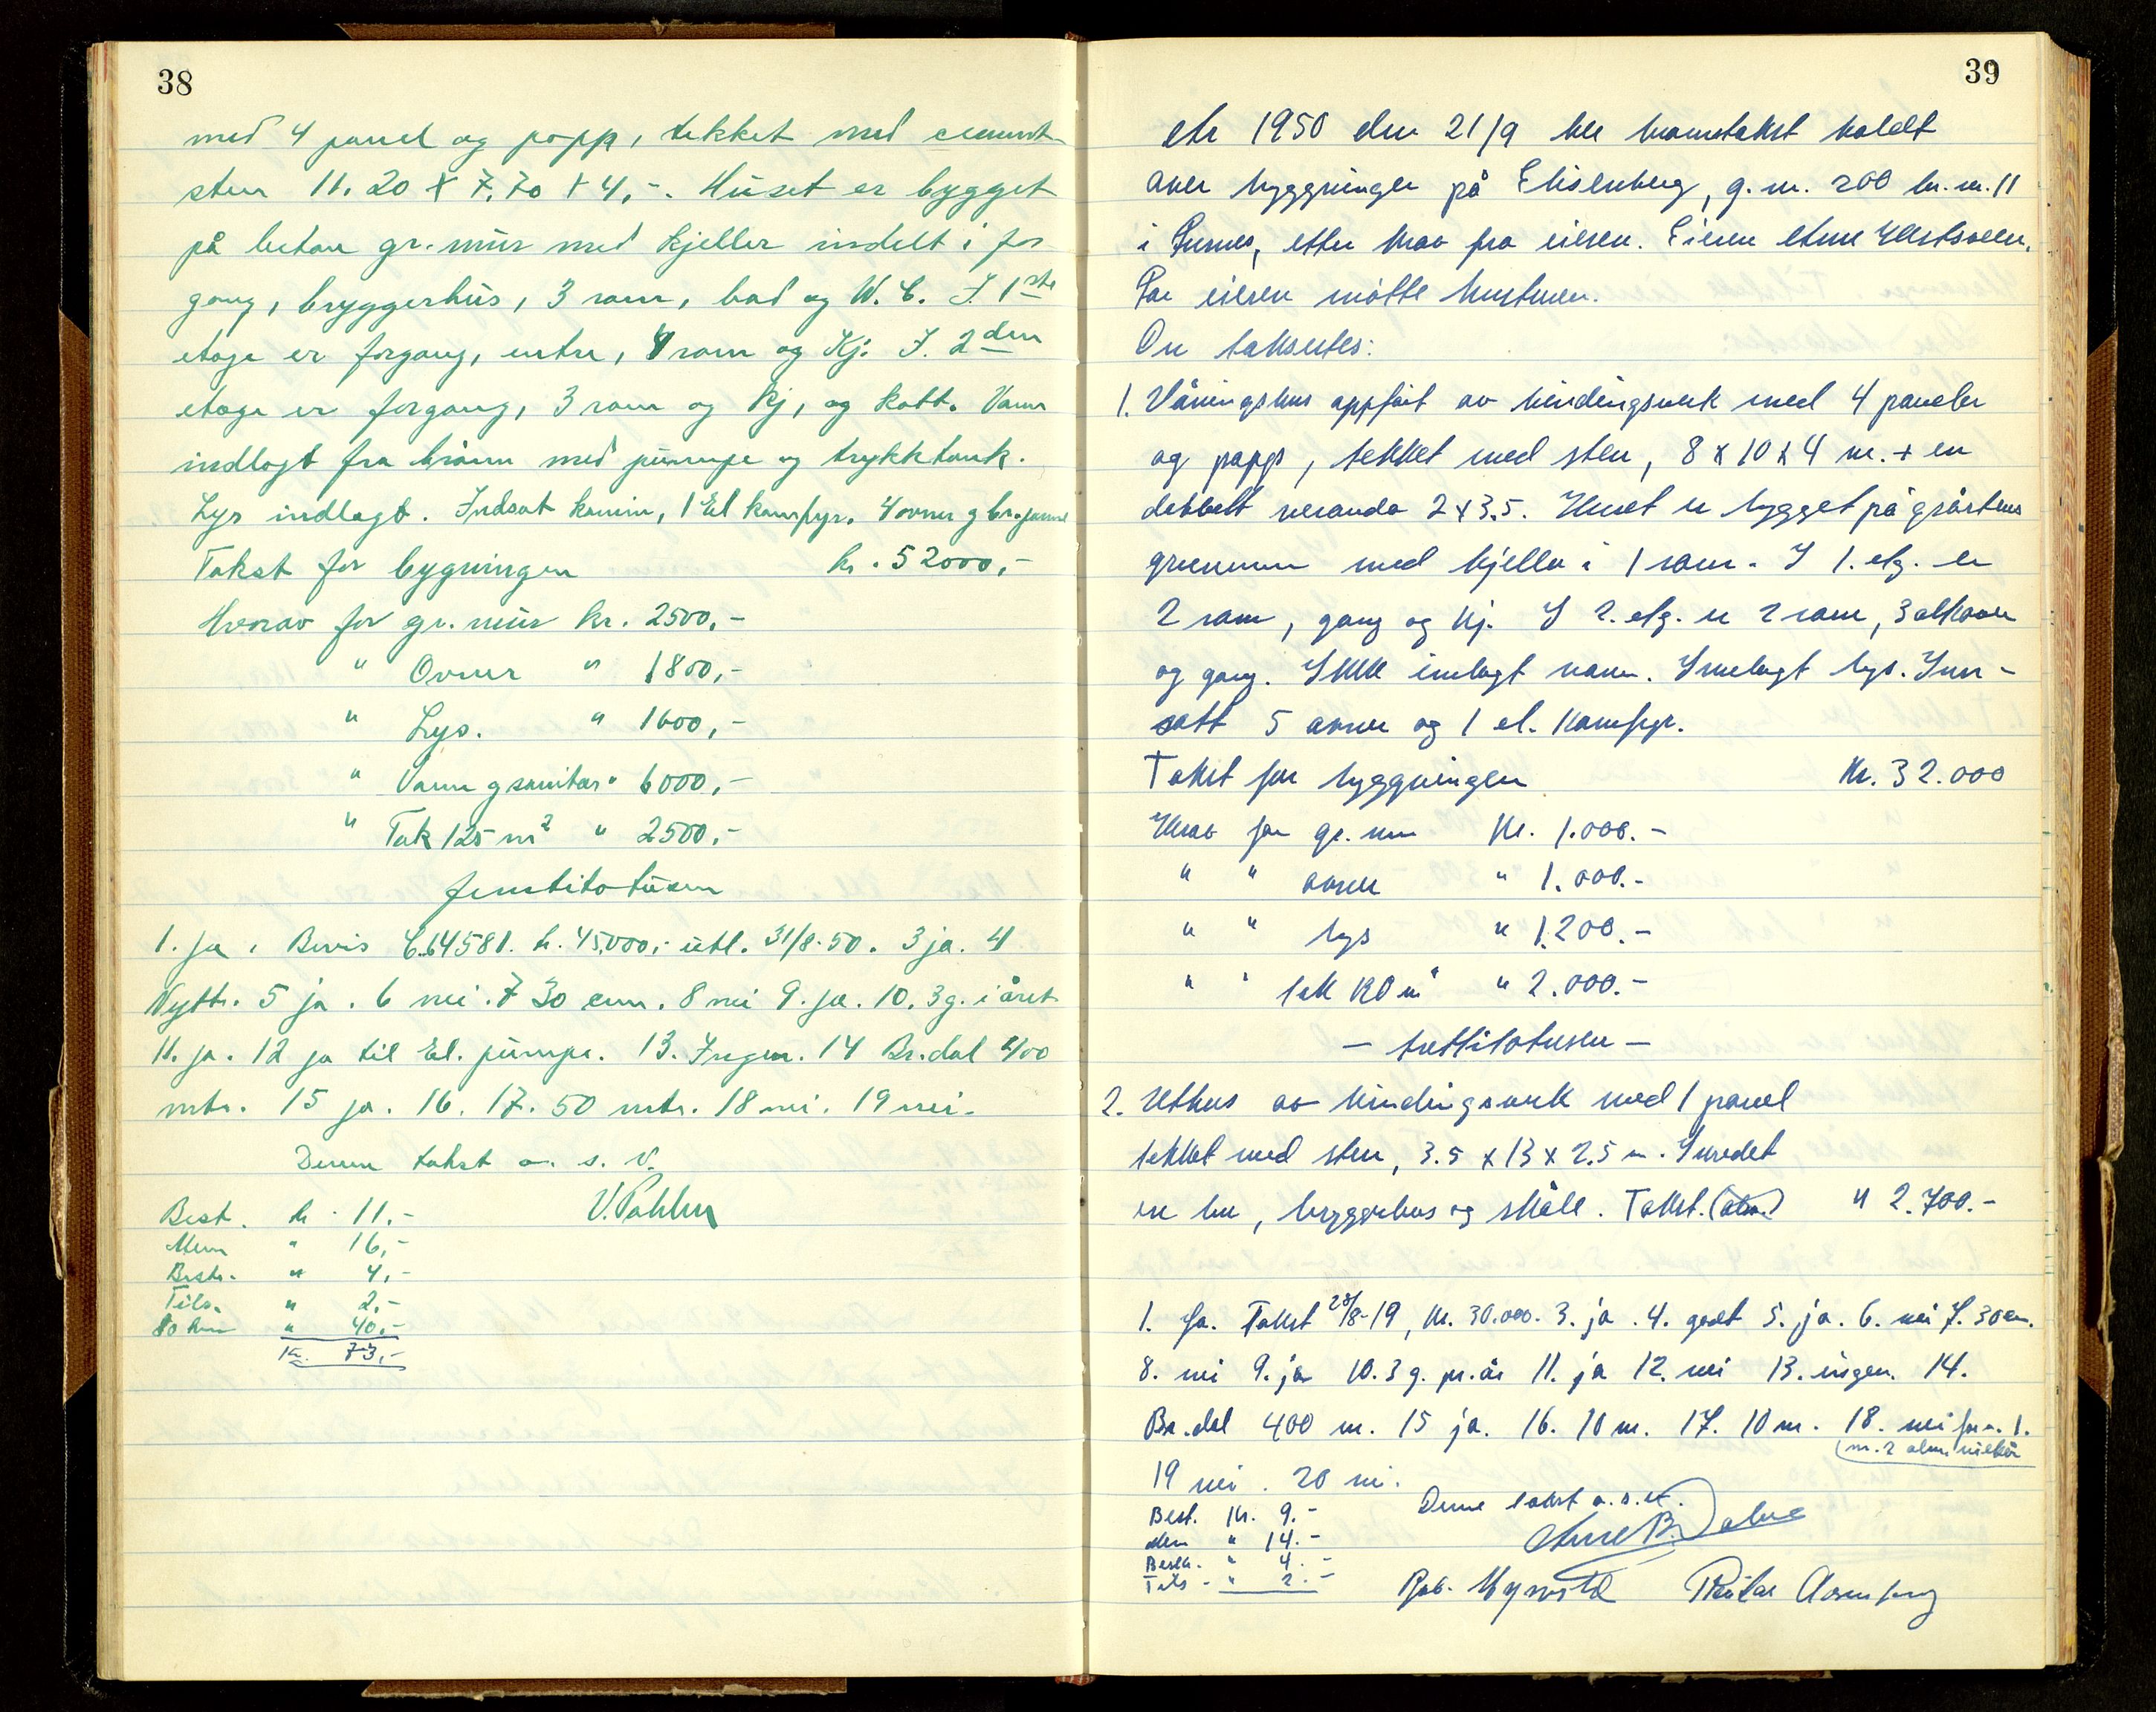 38
med 4 panel og papp, tekket med cement
sten 11.20 x 7.70 x 4,-. Huset er bygget
på beton gr. mur med kjeller indelt i for
gang, bryggerhus, 3 rom, bad og W.C. I. 1ste
etage er forgang, entre, 4 rom og Kj. I. 2den
etage er forgang, 3 rom og kj, og kott. Vann
indlagt fra brønn med pumpe og trykktank.
Lys indlagt. Indsat kamin, 1 El komfyr, 4 ovner g br.panne
Takst for bygningen kr. 52000,-
Hvorav for gr. mur kr. 2500,-
" Ovner " 1800,-
" Lys. " 1600,-
" Vann g sanitær " 6000,-
" Tak 125 m2 " 2500,-
femtitotusen
1. Ja, Bevis C.64581. kr. 45000,- utl. 31/8-50. 3 ja. 4
Nytt. 5 ja. 6 nei. 7 30 cm. 8 nei 9. ja. 10. 3 g. i året
11. ja. 12 ja til El. pumpe. 13. Ingen. 14 Br.dal 400
mtr. 15 ja. 16. 17. 50 mtr. 18 nei. 19 nei.
Denne takst o. s. v.
Best. kr. 11,-
Menn " 16,-
Bestr. " 4,-
Tils. " 2,-
" 40,-
Kr. 73,-
39
År 1950 den 21/9 ble branntakst holdt
over byggninger på Elisenberg, g.nr. 200 br.nr. 11
i Furnes, etter krav fra eieren. Eieren
For eieren møtte hustruen.
De taksertes:
1. Våningshus oppført av bindingsverk med 4 paneler
og papp, tekket med sten, 8 x 10 x 4 m. + en
dobbelt veranda 2 x 3.5. Huset er bygget på gråstens
grunnmur med kjeller i 1 rom. I 1. etg. er
2 rom, gang og kj. I 2. etg. er 2 rom, 3 alkover
og gang. Ikke innlagt vann. Innlagt lys. Inn-
satt 5 ovner og 1 el. komfyr.
Takst for byggningen Kr. 32.000
Herav for gr. mur Kr. 1.000.-
" " ovner " 1.000.-
" " lys " 1.200.-
" " tak 120 m2 " 2.000.-
- trettitotusen -
2. Uthus av bindingsverk med 1 panel
tekket med sten, 3.5 x 13 x 2.5 m. Innredet
er bu, bryggerhus og skåle. Takst. " 2.700.-
1. Ja. Takst 28/8-19, Kr. 30.000. 3. ja. 4. godt 5. ja. 6. nei 7. 30 cm.
8. nei 9. ja 10. 3 g. pr. år 11. ja 12. nei 13. ingen. 14.
Br.dal 400 m. 15 ja. 16. 10 m. 17. 10 m. 18. nei for nr. 1.
(nr. 2 alm. vilkår
19 nei. 20 nei.
Denne takst o.s.v.
Best. Kr. 9.-
Menn " 14.-
Bestr. " 4.-
Tils - " 2.-